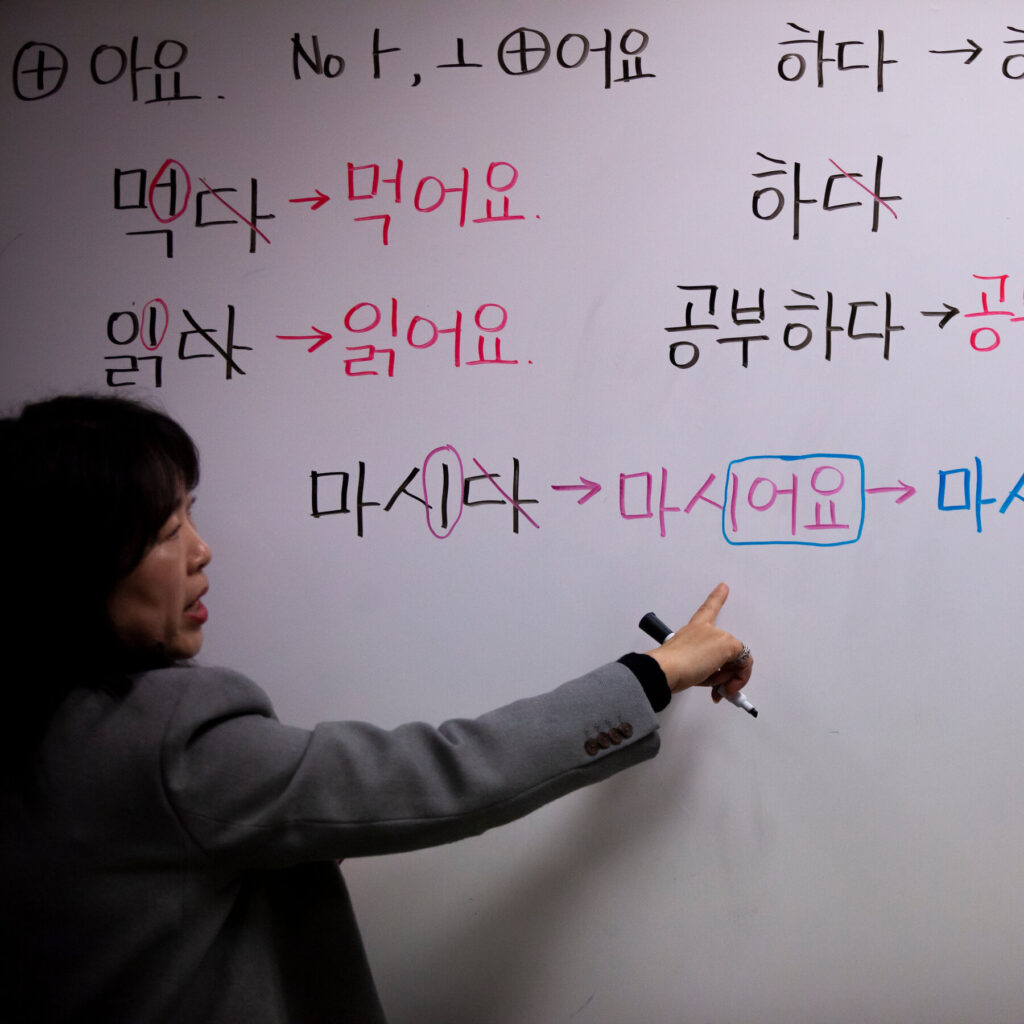 ⊕ 아요. No ㅏ, ㅗ ⊕어요 하다 →
먹다 → 먹어요. 하다
읽다 → 읽어요. 공부하다 → 공
마시다 → 마시어요 → 마